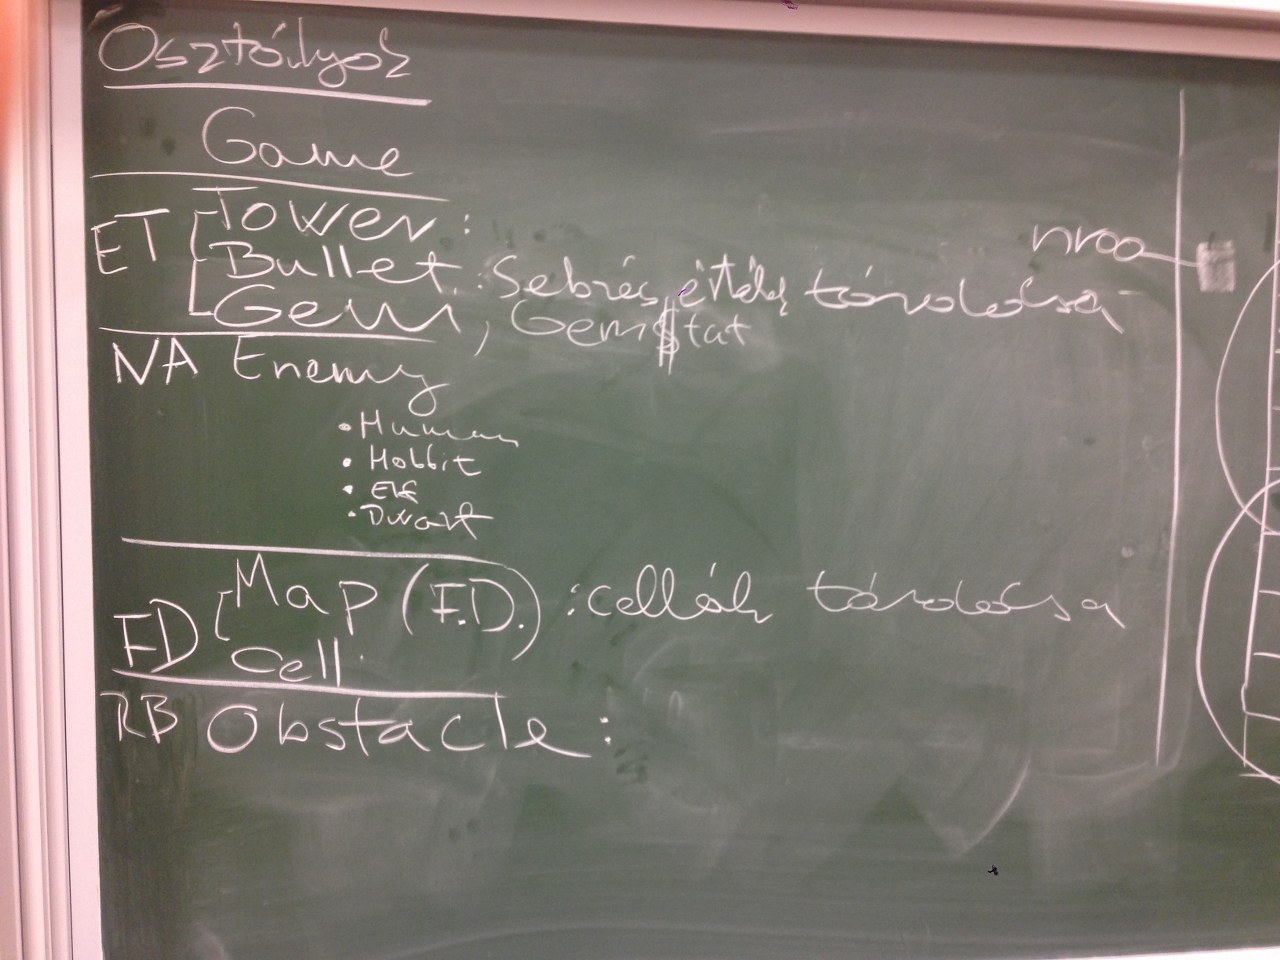 Osztályok
Game
ET Tower:
Bullet: Sebzés érték tárolása
Gem, GemStat
NA Enemy
• Human
• Hobbit
• Elf
• Dwarf
FD Map (F.D.) : cellák tárolása
Cell
RB Obstacle: